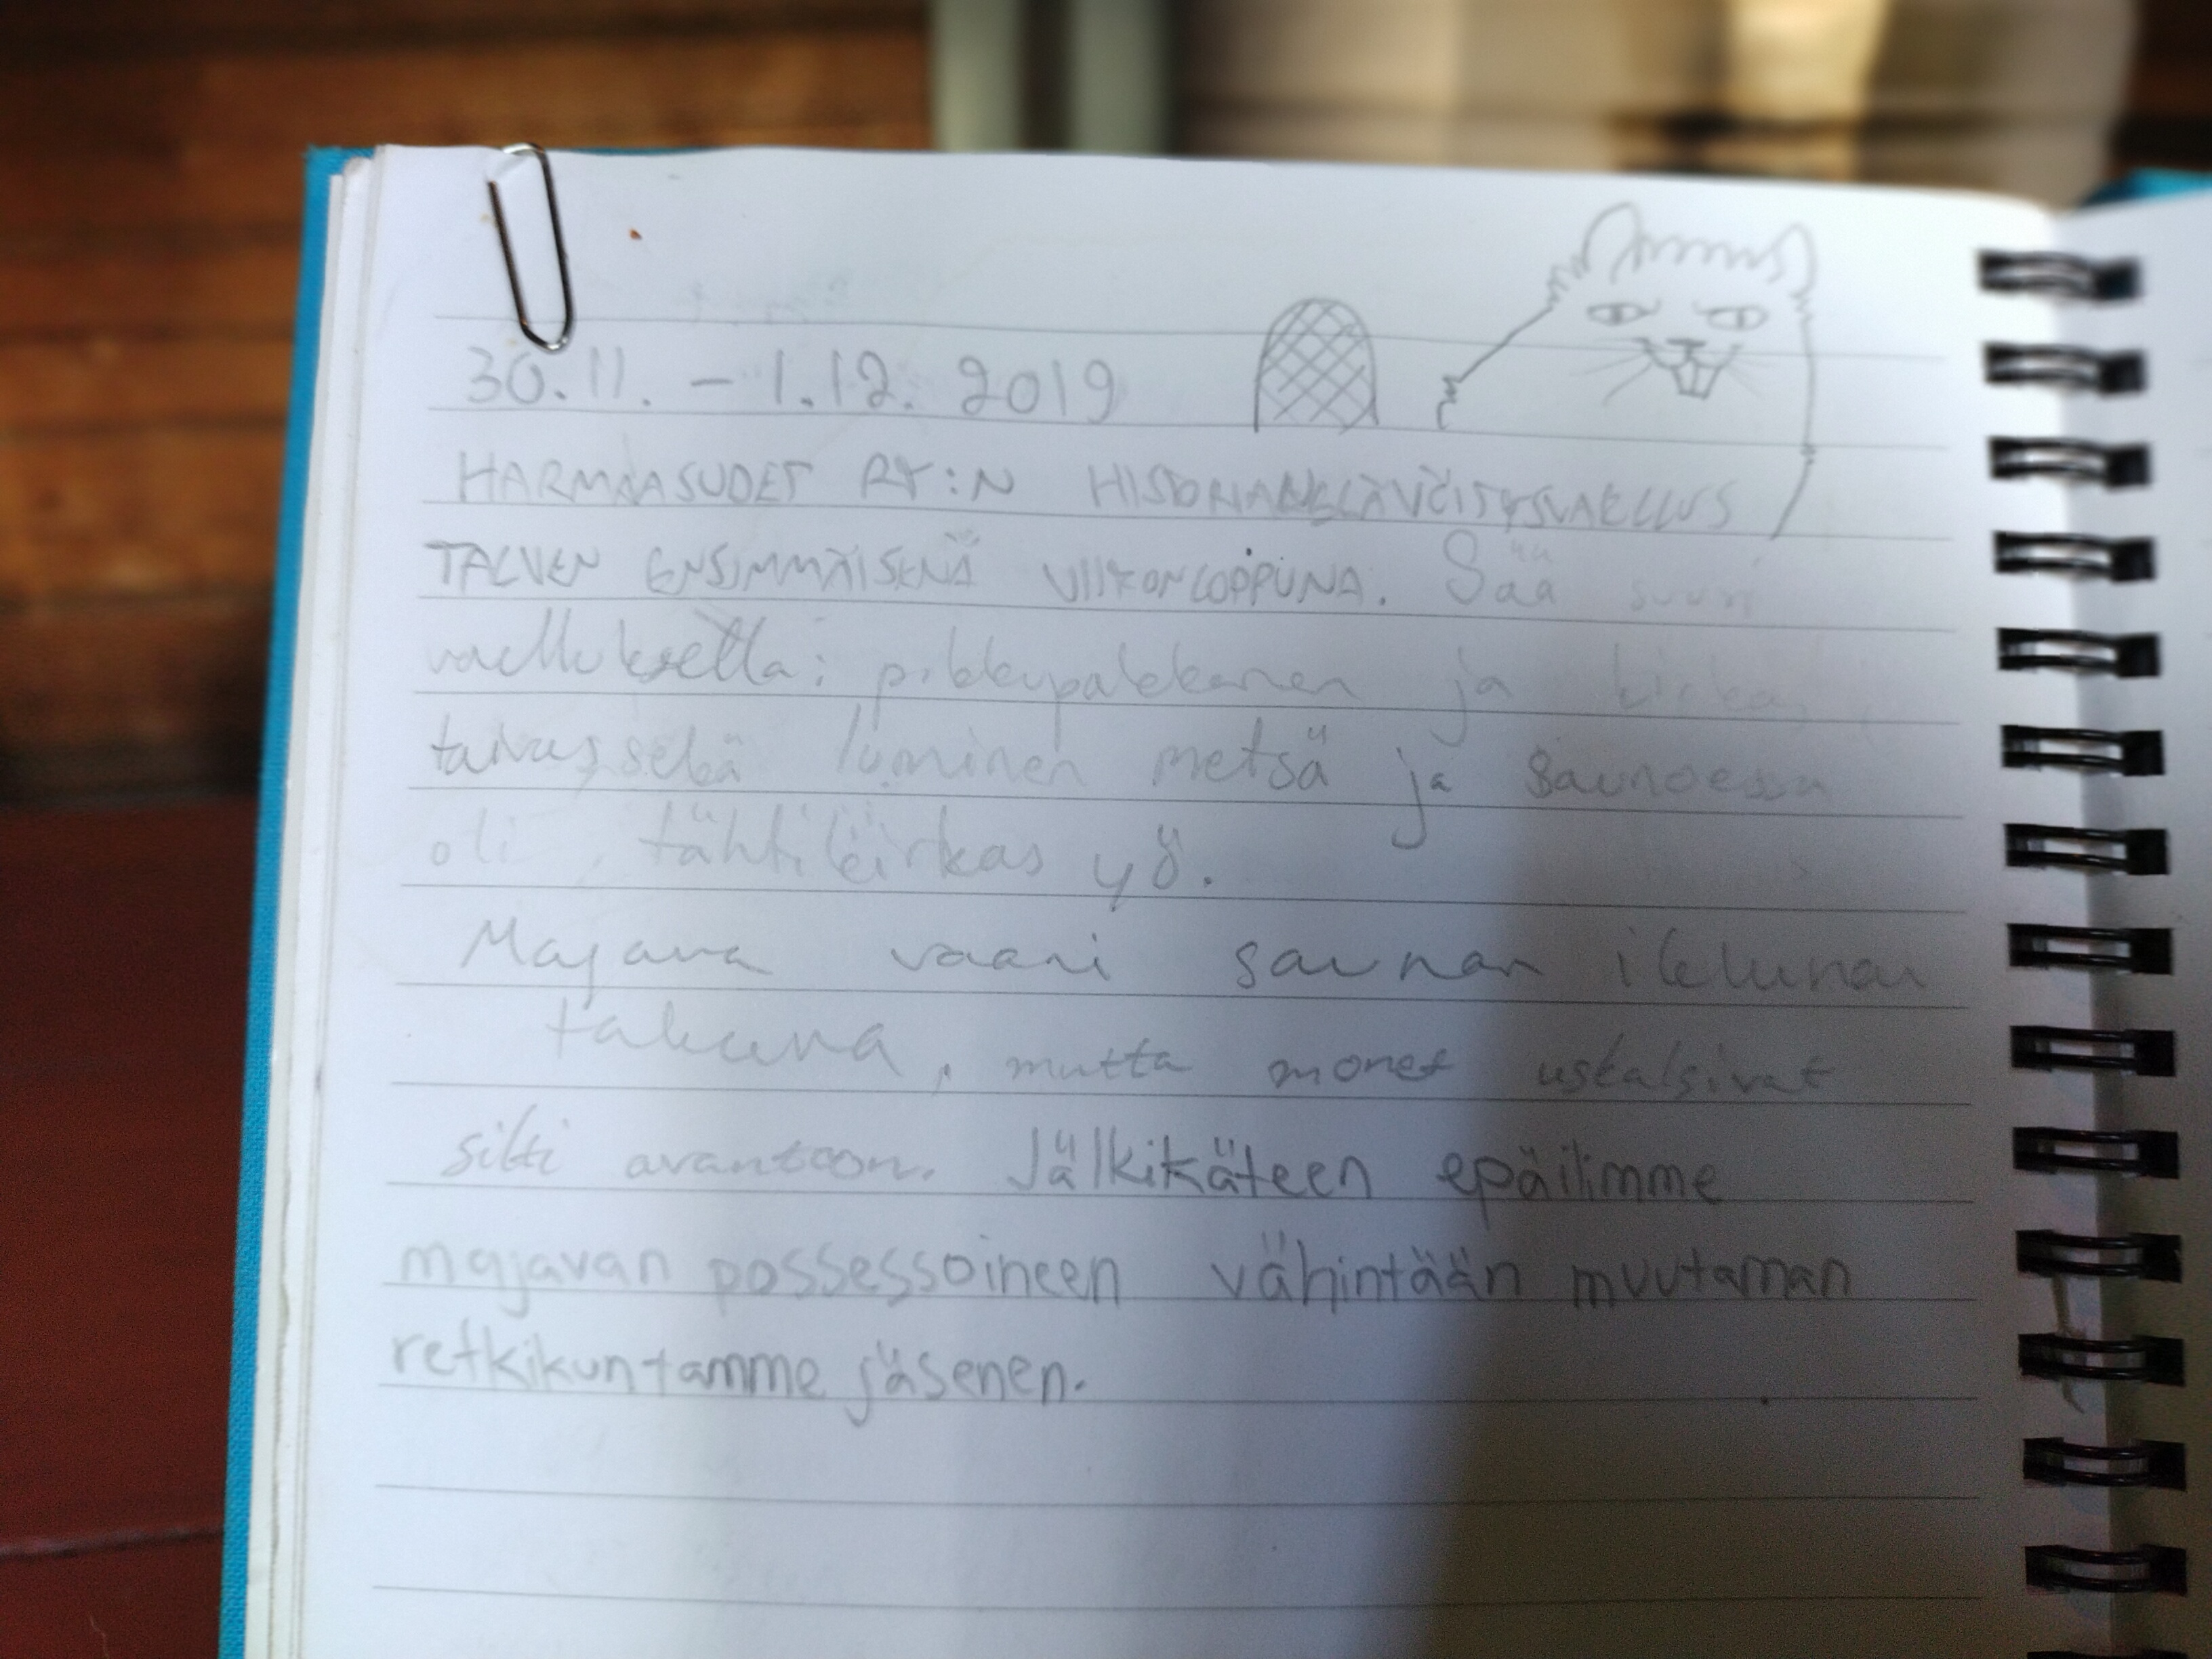 30.11. – 1.12. 2019
HARMAASUDET RY:N
TALVEN ENSIMMÄISENÄ VIIKONLOPPUNA. Sää suosi
vaelluksella: pikkupakkanen ja kirkas
taivas sekä luminen metsä ja saunoessa
oli tähtikirkas yö.
Majava vaani saunan ikkunan
takana, mutta monet uskalsivat
silti avantoon. Jälkikäteen epäilimme
majavan possessoineen vähintään muutaman
retkikuntamme jäsenen.